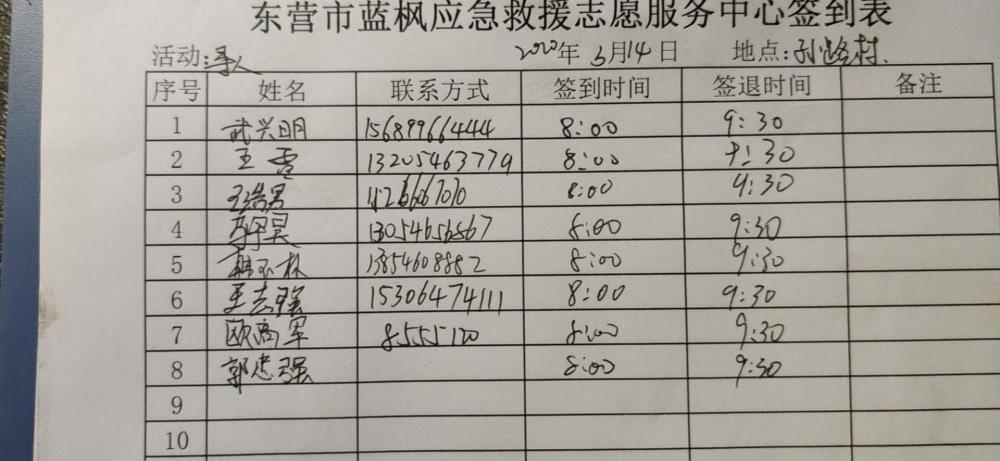 东营市蓝枫应急救援志愿服务中心签到表
活动:寻人 2020年 3月14日 地点:孙路村.
序号 姓名 联系方式 签到时间 签退时间 备注
1 武兴明 15689966444 8:00 9:30
2 王雪 13205463779 8:00 9:30
3 王浩男 8:00 9:30
4 昊 13054656867 8:00 9:30
5 韩玉林 13854608882 8:00 9:30
6 王志强 15306474111 8:00 9:30
7 欧高军 8555120 8:00 9:30
8 郭忠强 8:00 9:30
9
10